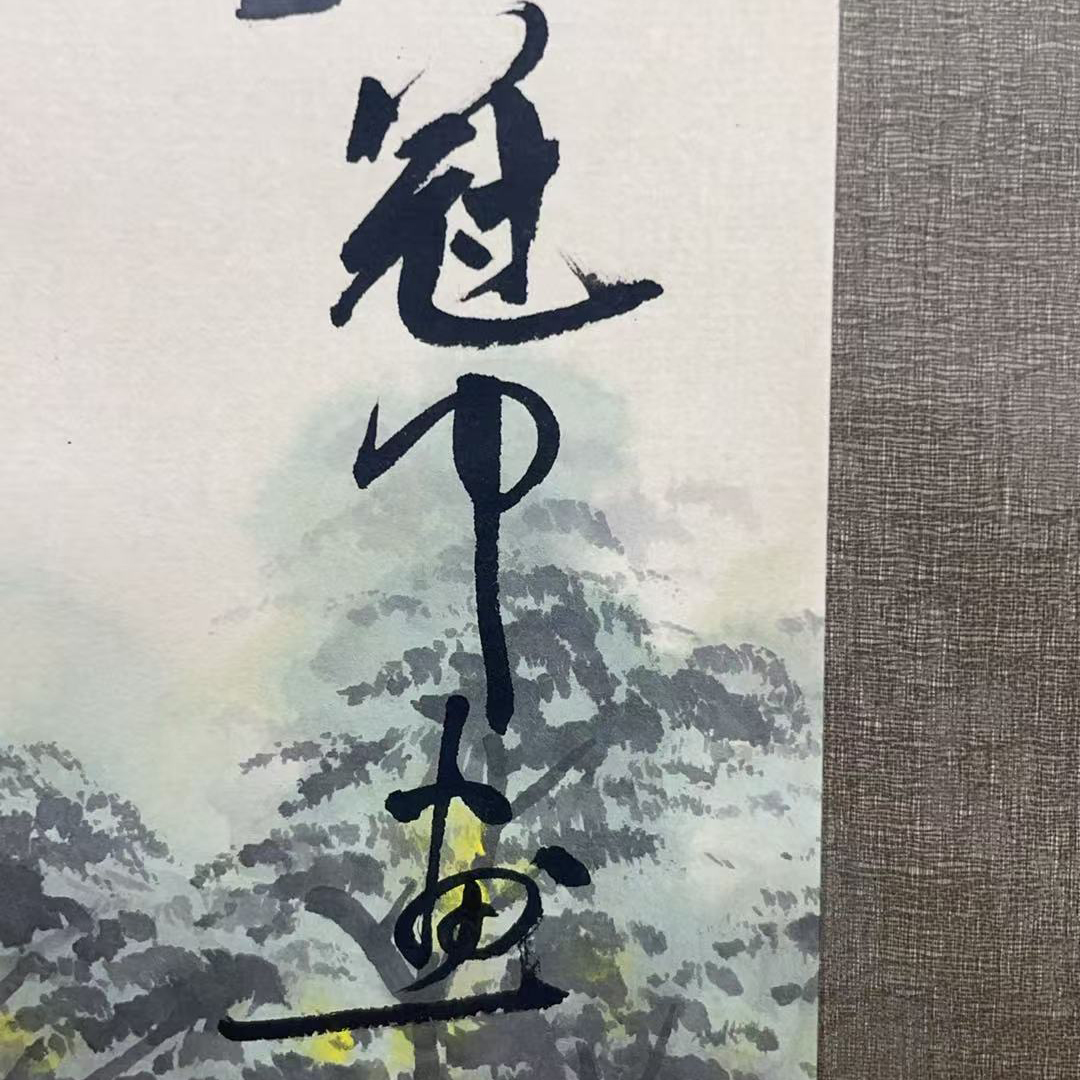 冠中畫